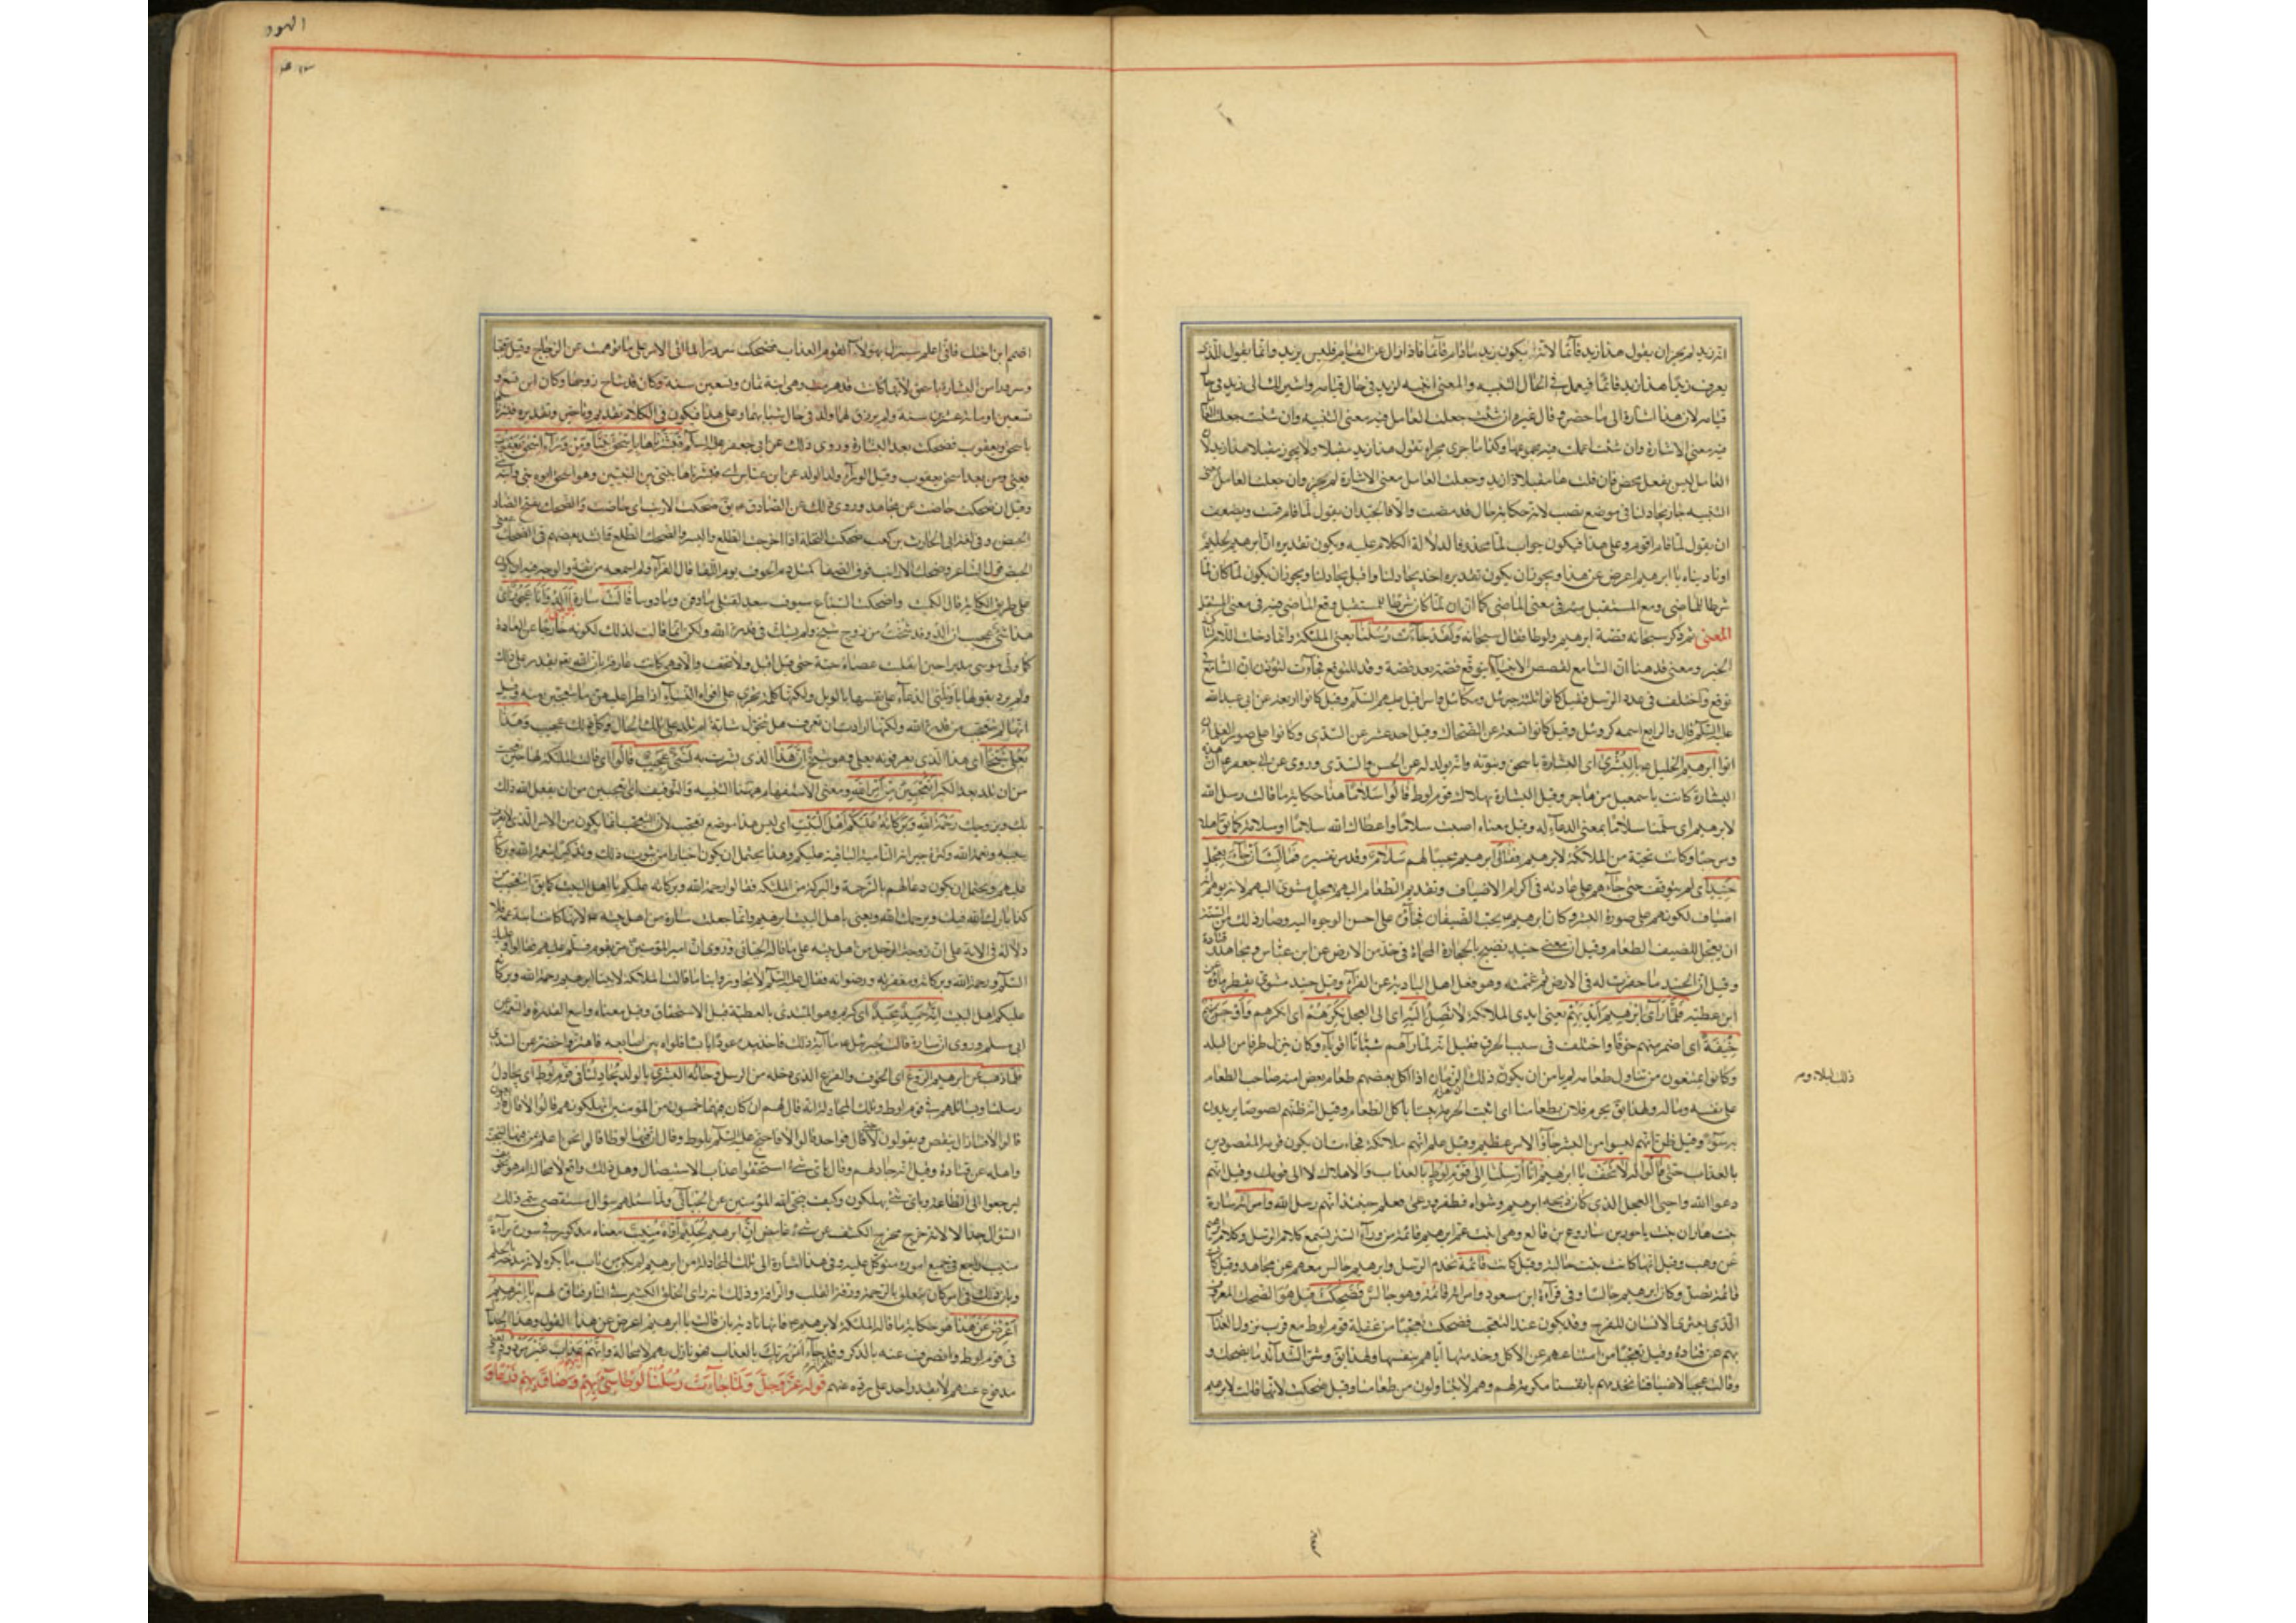 انه زيد لم يجز ان يقول هذا زيد قآئما لانه يكون زيد ما دام قآئما فاذا زال عن القيام فليس بزيد وانما يقول للذي
يعرف زيدا هذا زيد قائما فيعمل في الحال التنبيه والمعنى انتبه لزيد في حال قيامه واشير لك الى زيد في حال
قيامه لان هذا اشارة الى ما حضر وقال غيره ان شئت جعلت العامل فيه معنى التنبيه وان شئت جعلت العامل
فيه معنى الاشارة وان شئت اعملت فيه مجموعهما وكذا ما جرى مجراه تقول هذا زيد مقبلا ولا يجوز مقبلا هذا زيد لان
العامل ليس بفعل محض فان قلت ها مقبلا ذا زيد وجعلت العامل معنى الاشارة لم يجز وان جعلت العامل معنى
التنبيه جاز يجادلنا في موضع نصب لانه حكاية حال قد مضت والا فالجيد ان يقول لما قام قمت ويضعف
ان يقول لما قام اقوم وعلى هذا فيكون جواب لما محذوفا لدلالة الكلام عليه ويكون تقديره ان ابرهيم لحليم
او ناديناه يا ابرهيم اعرض عن هذا ويجوز ان يكون تقديره اخذ يجادلنا واقبل يجادلنا ويجوز ان يكون لما كان لما
شرطا للماضي وقع المستقبل فيه في معنى الماضي كما ان ان لما كان شرطا للمستقبل وقع الماضي فيه في معنى المستقبل
المعنى ثم ذكر سبحانه قصة ابرهيم ولوطا فقال سبحانه ولقد جاءت رسلنا يعنى الملئكة وانما دخلت اللام لتاكيد
الخبر ومعنى قد هنا ان السامع لقصص الانبيآء يتوقع قصة بعد قصة وقد للتوقع فجاءت لتوذن ان السامع في
توقع واختلف في عدد الرسل فقيل كانوا ثلثة جبرئيل وميكائيل واسرافيل عليهم السلام وقيل كانوا اربعة عن ابى عبد الله
عليه السلام قال والرابع اسمه كروبيل وقيل كانوا تسعة عن الضحاك وقيل احد عشر عن السدى وكانوا على صور الغلمان
اتوا ابرهيم الخليل ع بالبشرى اى البشارة باسحق ونبوته وانه يولد له عن الحسن والسدى وروى عن ابى جعفر ع ان هذه
البشارة كانت باسمعيل من هاجر وقيل البشارة بهلاك قوم لوط قالوا سلاما هذا حكاية ما قالت رسل الله
لابرهيم اى سلمنا سلاما بمعنى الدعاء له وقيل معناه اصبت سلاما واعطاك الله سلاما او سلامة كما يق اهلا
ومرحبا وكانت تحية من الملائكة لابرهيم فقال ابرهيم مجيبا لهم سلام وقد مر تفسيره فما لبث ان جآء بعجل
حنيذ اى لم يتوقف حتى جاءهم على عادته في اكرام الاضياف وتقديم الطعام اليهم بعجل مشوى اليهم لانه توهم انهم
اضياف لكونهم على صورة البشر وكان ابرهيم ع يحب الضيفان فجاؤه على احسن الوجوه اليه وصار ذلك من السنة
ان يعجل للضيف الطعام وقيل ان معنى حنيذ نضيج بالحجارة المحماة في خد من الارض عن ابن عباس ومجاهد وقتادة
وقيل ان الحنيذ ما حفرت له في الارض ثم غممته وهو فعل اهل البادية عن الفرآء وقيل حنيذ مشوى يقطر مآؤه عن
ابن عطية فلما رآى ابرهيم ايديهم يعنى ايدى الملائكة لا تصل اليه اى الى العجل نكرهم اى انكرهم واوجس منهم
خيفة اى اضمر منهم خوفا واختلف في سبب الخوف فقيل انه لما راهم شبانا اقوياء وكان ينزل طرفا من البلد
وكانوا يمتنعون من تناول طعامه لم يامن ان يكون ذلك لبلاء وذلك ان اهل الزمان اذا اكل بعضهم طعام بعض امنه صاحب الطعام
على نفسه وماله ولهذا يق يحرم فلان بطعامنا اى اثبت الحرمة بيننا باكل الطعام وقيل انه ظنهم لصوصا يريدون
به سوءا وقيل ظن انهم ليسوا من البشر جاؤا لامر عظيم وقيل علم انهم ملائكة فخاف ان يكون قومه المقصودين
بالعذاب حتى قالوا له لا تخف يا ابرهيم انا ارسلنا الى قوم لوط بالعذاب والاهلاك لا الى قومك وقيل انهم
دعوا الله واحيى العجل الذى كان ذبحه ابرهيم وشواه فطفر ورعى فعلم حينئذ انهم رسل الله وامراته سارة
بنت هاران بن ياحور بن ساروع بن فالع وهى ابنت عم ابرهيم قائمة من وراء الستر تسمع كلام الرسل وكلام ابرهيم
عن وهب وقيل انها كانت بنت خالته وقيل كانت قائمة تخدم الرسل وابرهيم جالس معهم عن مجاهد وقيل كانت
قائمة تصلى وكان ابرهيم جالسا وفى قرآءة ابن مسعود وامراته قائمة وهو جالس فضحكت قيل هو الضحك المعروف
الذى يعترى الانسان للفرح وقد يكون عند التعجب فضحكت تعجبا من غفلة قوم لوط مع قرب نزول العذاب
بهم عن قتادة وقيل تعجبا من امتناعهم عن الاكل وخدمتها اياهم بنفسها ولهذا يق وشر الشدائد ما يضحك و
وقالت عجبا لاضيافنا نخدمهم بانفسنا تكرمة لهم وهم لا يتناولون من طعامنا وقيل ضحكت لانها قالت لابرهيم
اضمم ابن اختك فانى اعلم سينزل بهولاء القوم العذاب فضحكت سرورا لما اتى الامر على ما توهمت عن الزجاج وقيل تعجبا
وسرورا من البشارة باسحق لانها كانت قد هرمت وهى ابنة ثمان وتسعين سنة وكان قد شاخ زوجها وكان ابن تسع و
تسعين او مائة وعشرين سنة ولم يرزق لهما ولد في حال شبابهما وعلى هذا فيكون في الكلام تقديم وتاخير وتقديره فبشرناها
باسحق ويعقوب فضحكت بعد البشارة وروى ذلك عن ابى جعفر عليه السلام فبشرناها باسحق نبيا ومن ورآء اسحق يعقوب
يعنى ومن بعد اسحق يعقوب وقيل الورآء ولد الولد عن ابن عباس اى فبشرناها بنبى بين النبيين وهو اسحق ابوه نبى وابنه نبى
وقيل ان ضحكت حاضت عن مجاهد وروى ذلك عن الصادق ع يق ضحكت الارنب اى حاضت والضحك بفتح الضاد
الحيض وفى لغة ابى الحارث بن كعب ضحكت النخلة اذا اخرجت الطلع والبسر والضحك الطلع فانشد بعضهم في الضحك بمعنى
الحيض قول الشاعر وضحك الارانب فوق الصفا كمثل دم الجوف يوم اللقا قال الفرآء ولم اسمعه من ثقة والوجه فيه ان يكون
على طريق الكناية قال الكميت واضحكت السباع سيوف سعد لقتلى ما دفن وما ودينا قالت سارة يا ويلتى ءالد وانا عجوز اى
هذا شئ عجيب ان الد وقد شخت من زوج شيخ ولم يشك في قدرة الله ولكن انما قالت لذلك لكونه خارجا عن العادة
كما ولى موسى مدبرا حين انقلبت عصاه حية حتى قيل اقبل ولا تخف والا فهى كانت عارفة بان الله يقدر على ذلك
ولم ترد بقولها يا ويلتى الدعآء على نفسها بالويل ولكنها كلمة تجرى على افواه النسآء اذا طرا عليهن ما يتعجبن منه وقيل
انها لم تتعجب من قدرة الله ولكنها ارادت ان تعرف هل تتحول شابة ام تلد على تلك الحال وكل ذلك عجيب وهذا
بعلى شيخا اى هذا الذى تعرفونه بعلى وهو شيخ ان هذا الذى بشرت به لشئ عجيب قالوا اى قالت الملئكة لها حين تعجبت
من ان تلد بعد الكبر اتعجبين من امر الله ومعنى الاستفهام ههنا التنبيه والتوقيف اى تعجبين من ان يفعل الله ذلك
بك وبزوجك رحمة الله وبركاته عليكم اهل البيت اى ليس هذا موضع تعجب لان التعجب انما يكون من الامر الذى لا يعرف
سببه ونعمة الله وكثرة خيراته النامية الباقية عليكم وهذا يحتمل ان يكون اخبارا من ثبوت ذلك وتذكيرا لنعمة الله وبركاته
عليهم ويحتمل ان يكون دعا لهم بالرحمة والبركة من الملئكة فقالوا رحمة الله وبركاته عليكم يا اهل البيت كما يق اتتعجب من
كذا بارك الله فيك ويرحمك الله ويعنى باهل البيت بيت ابرهيم وانما جعلت سارة من اهل بيته لانها كانت ابنة عمه فلا
دلالة في الاية على ان زوجة الرجل من اهل بيته على ما قاله الجبائى وروى ان امير المؤمنين مر بقوم فسلم عليهم فقالوا وعليك
السلام ورحمة الله وبركاته ومغفرته ورضوانه فقال عليه السلام لا تجاوزوا بنا ما قالت الملائكة لابينا ابرهيم رحمة الله وبركاته
عليكم اهل البيت انه حميد مجيد اى كريم وهو المبتدى بالعطية قبل الاستحقاق وقيل معناه واسع القدرة والنعمة عن
ابى مسلم وروى ان سارة قالت لجبرئيل ع ما آية ذلك فاخذ بيده عودا يابسا فلواه بين اصابعه فاهتز واخضر عن السدى
فلما ذهب عن ابرهيم الروع اى الخوف والفزع الذى دخله من الرسل وجائته البشرى بالولد يجادلنا في قوم لوط اى يجادل
رسلنا ويسائلهم في قوم لوط وتلك المجادلة انه قال لهم ان كان فيها خمسون من المؤمنين اتهلكونهم قالوا لا قال فاربعون
قالوا لا فما زال ينقص ويقولون لا حتى قال فواحد قالوا لا فاحتج عليه السلام بلوط وقال ان فيها لوطا قالوا نحن اعلم بمن فيها لننجينه
واهله عن قتادة وقيل انه جادلهم وقال باى شئ استحقوا عذاب الاستيصال وهل ذلك واقع لا محالة ام هو تخويف
ليرجعوا الى الطاعة وباى شئ يهلكون وكيف ينجى الله المؤمنين عن الجبائى ولما سئلهم سؤال مستقص سمى ذلك
السؤال جدالا لانه خرج مخرج الكشف عن شئ غامض ان ابرهيم لحليم اواه منيب معناه مذكور في سورة براءة
منيب راجع في جميع اموره متوكل عليه وفى هذا اشارة الى تلك المجادلة من ابرهيم لم يكن من باب ما يكره لانه مدحه بالحلم
وبان ذلك في امر كان يتعلق بالرحمة ورقة القلب والرافة وذلك انه راى الخلق الكثير في النار فتاوه لهم يا ابرهيم
اعرض عن هذا هو حكاية ما قالت الملئكة لابرهيم ع فانها نادته بان قالت يا ابرهيم اعرض عن هذا القول وهذا الجدال
في قوم لوط وانصرف عنه بالذكر وقد جاء امر ربك بالعذاب فهو نازل بهم لا محالة وانهم اتيهم عذاب غير مردود يعنى غير
مدفوع عنهم لا يقدر احد على رده عنهم قوله عز وجل ولما جآءت رسلنا لوطا سئ بهم وضاق بهم ذرعا و